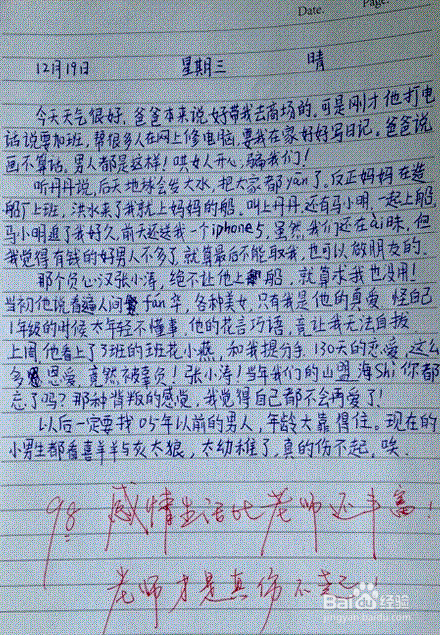 Date.
Page.
12月19日 星期三 晴
今天天气很好，爸爸本来说好带我去商场的，可是刚才他打电
话说要加班，帮很多人在网上修电脑，要我在家好好写日记。爸爸说
画不算话，男人都是这样！哄女人开心，骗我们！
听丹丹说，后天地球会发大水，把大家都yān了。反正妈妈在造
船厂上班，洪水来了我就上妈妈的船。叫上丹丹还有马小明，一起上船，
马小明追了我好久，前天还送我一个iphone5，虽然我们还在ài昧，但
我觉得有钱的好男人不多了，就算最后不能取我，也可以做朋友的。
那个负心汉张小涛，绝不让他上船，就算求我也没用！
当初他说看遍人间fán华，各种美女，只有我是他的真爱，怪自己
1年级的时候太年轻不懂事，他的花言巧语，竟让我无法自拔
上周他看上了3班的班花小燕，和我提分手，130天的恋爱，这么
多恩爱，竟然被辜负！张小涛！当年我们的山盟海Shì你都
忘了吗？那种背叛的感觉，我觉得自己都不会再爱了！
以后一定要找05年以前的男人，年龄大靠得住。现在的
小男生都看喜羊羊与灰太狼，太幼稚了，真的伤不起，唉。
98 感情生活比老师还丰富！
老师才是真伤不起！
Baidu经验
jingyan.baidu.com